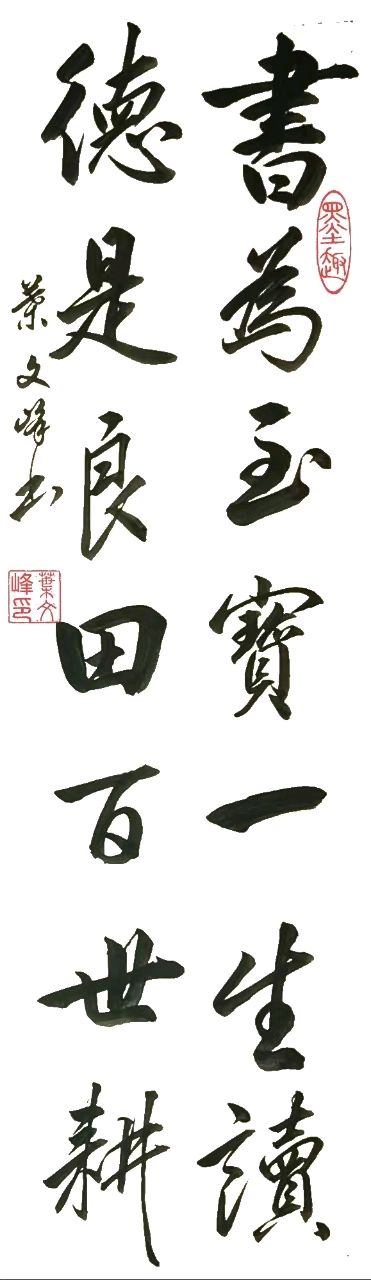 書為至寶一生讀
德是良田百世耕
葉文峰書
墨趣
葉文峰印